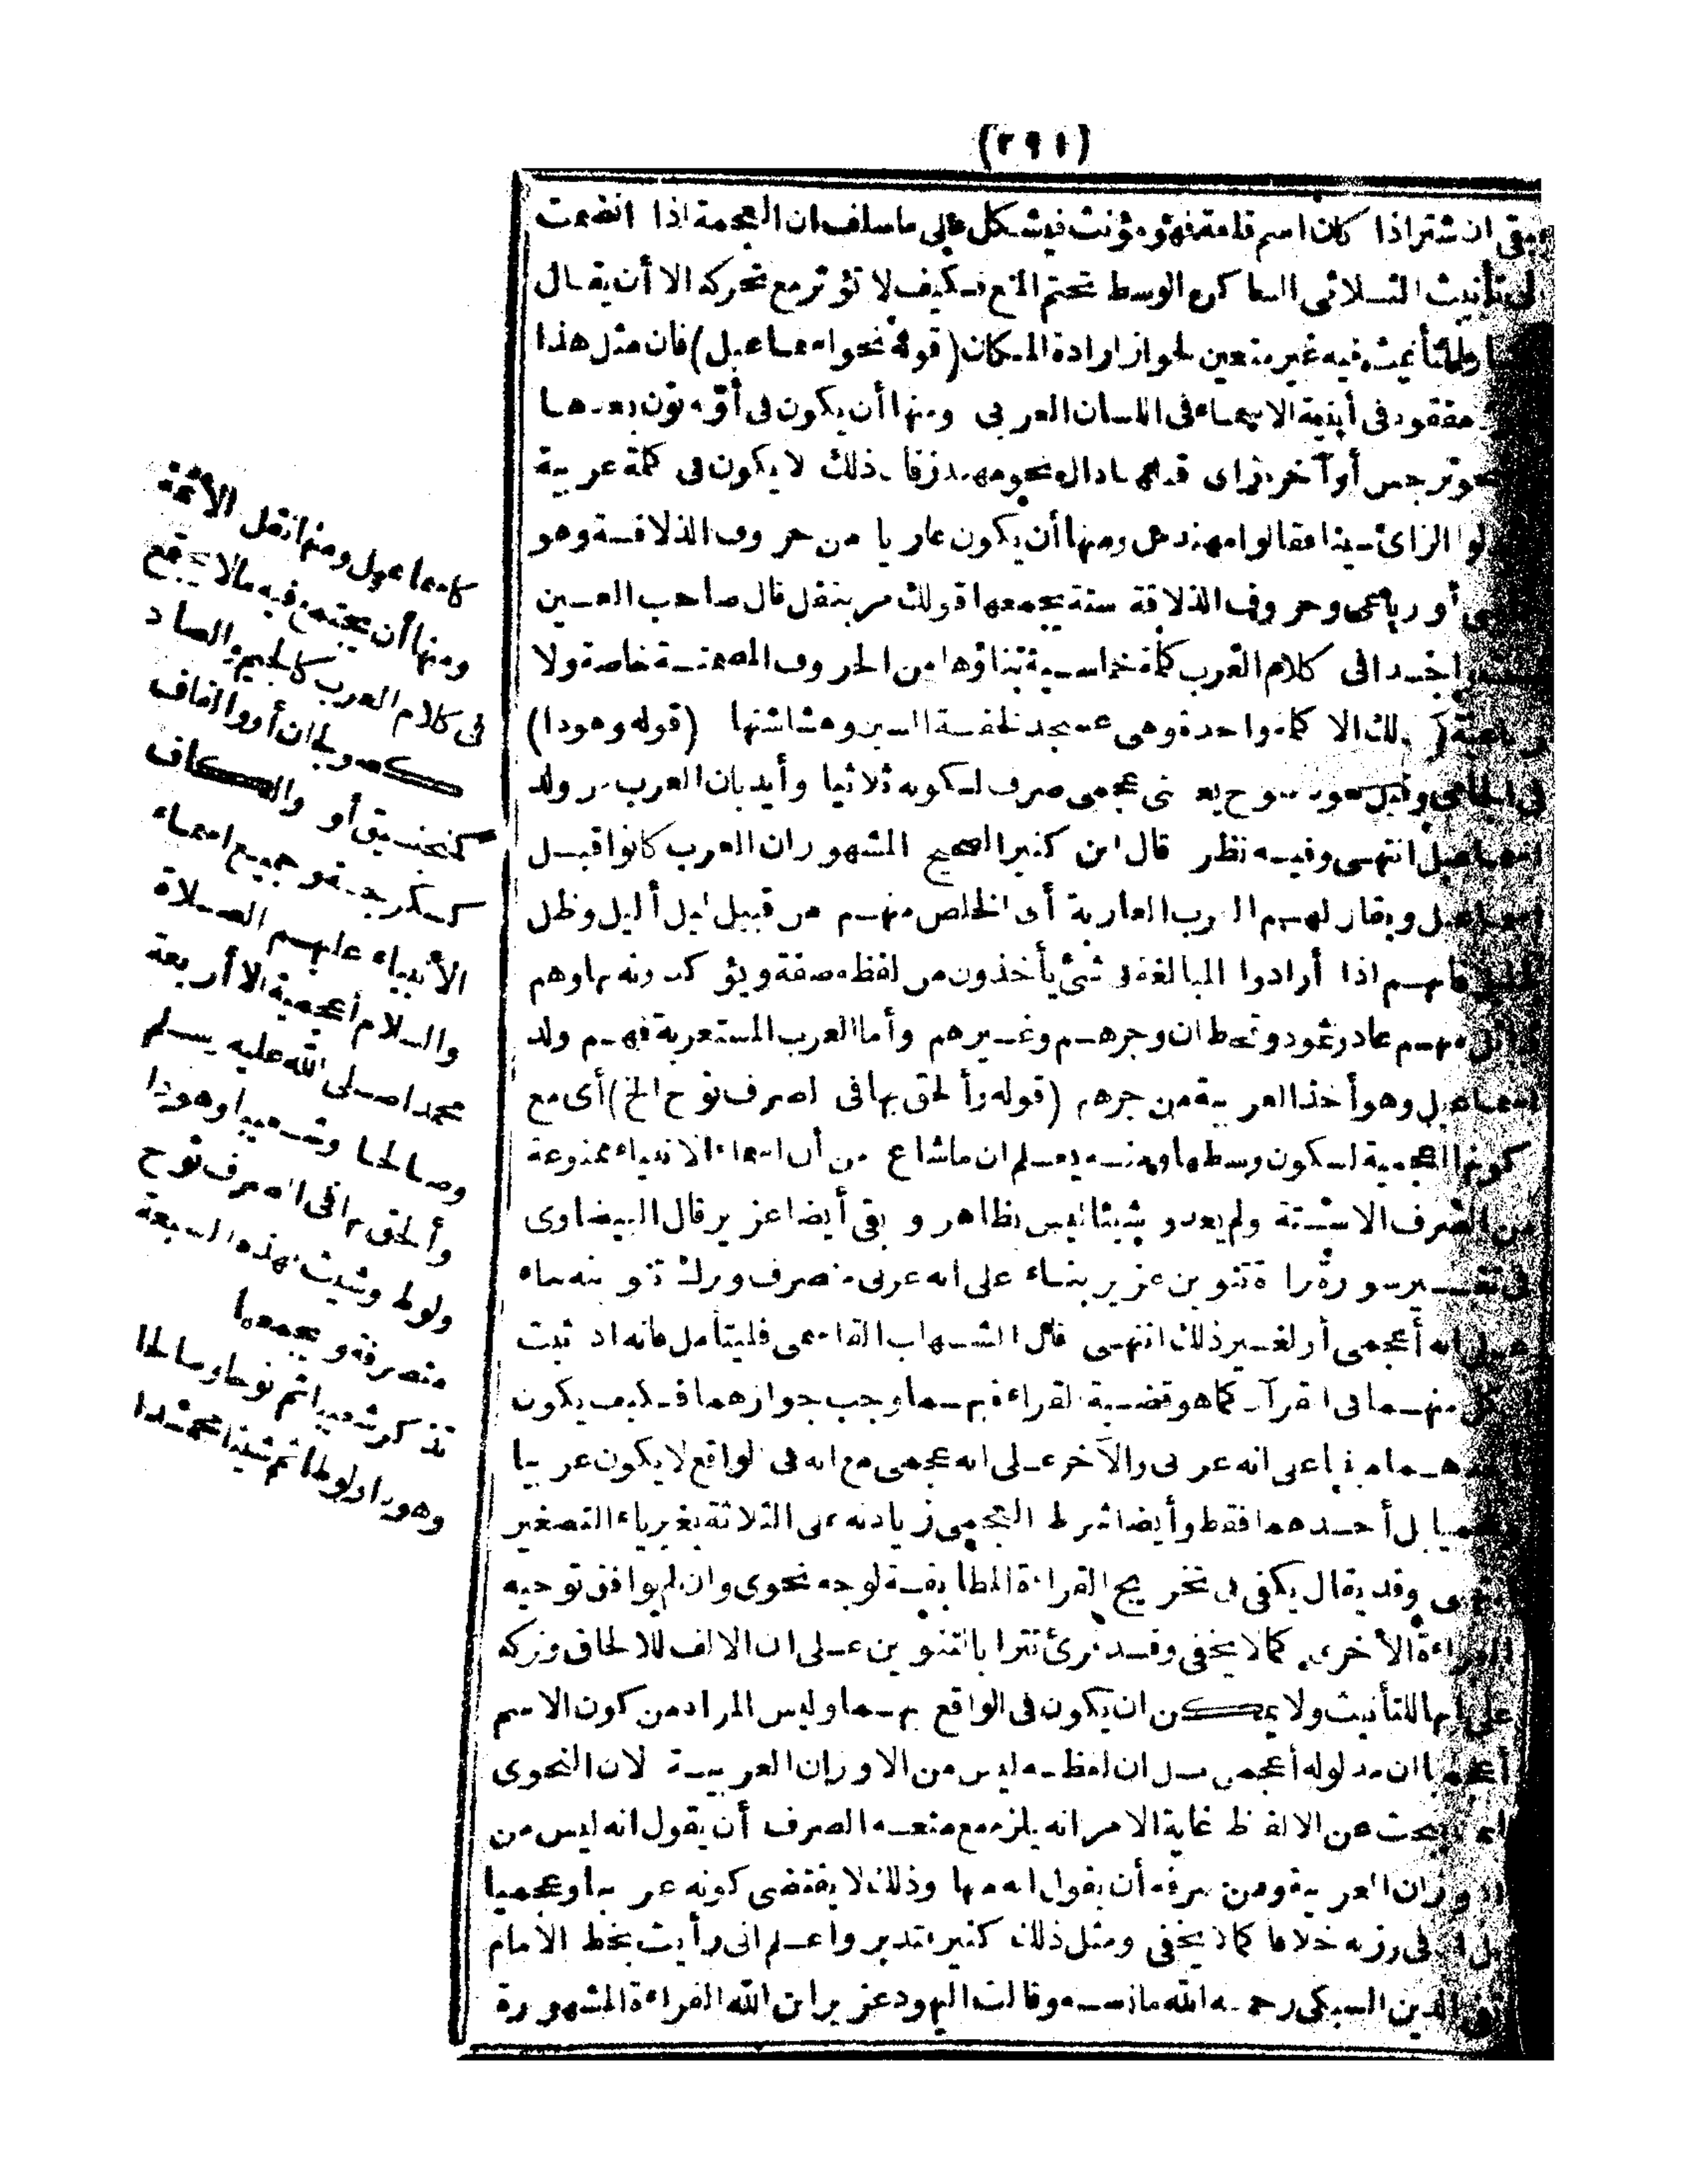 (٢٩١)
وبقى ان شتر اذا كان اسم قلعة فهو مؤنث فيشكل على ماسلف ان العجمة اذا انضمت
الى تأنيث الثلاثى الساكن الوسط تحتم المنع فكيف لا تؤثر مع تحركه الا أن يقال
التأنيث فيه غير متعين لجواز ارادة المكان (قوله نحو اسماعيل) فان مثل هذا
مفقود فى أبنية الاسماء فى اللسان العربى ومنها أن يكون فى أوله نون بعدها
نحو نرجس أو آخره زاى قبلها دال نحو مهندز فان ذلك لا يكون فى كلمة عربية
الزاى سينا فقالوا مهندس ومنها أن يكون عاريا من حروف الذلاقة وهو
أو رباعى وحروف الذلاقة ستة يجمعها قولك مر بنفل قال صاحب العين
فى كلام العرب كلمة خماسية بناؤها من الحروف المصمتة خاصة ولا
رباعية كذلك الا كلمة واحدة وهى عسجد لخفة السين وهشاشتها (قوله وهودا)
صرف لكونه ثلاثيا وأيد بان العرب من ولد
اسماعيل انتهى وفيه نظر قال ابن كثير الصحيح المشهور ان العرب كانوا قبل
اسماعيل ويقال لهم العرب العاربة أى الخلص منهم من قبيل ليل أليل وظل
ظليل فانهم اذا أرادوا المبالغة فى شئ يأخذون من لفظه صفة ويؤكدونه بها وهم
قبائل منهم عاد وثمود وقحطان وجرهم وغيرهم وأما العرب المستعربة فهم ولد
اسماعيل وهو أخذ العربية من جرهم (قوله وألحق بها فى الصرف نوح الخ) أى مع
كونها أعجمية لسكون وسطها وبه يعلم ان ماشاع من أن اسماء الانبياء ممنوعة
من الصرف الا ستة ولم يعدو شيثا ليس بظاهر وبقى أيضا عزير قال البيضاوى
فى تفسير سورة براءة تنوين عزير بناء على انه عربى منصرف وترك تنوينه بناء
على انه أعجمى أو لغير ذلك انتهى قال الشهاب القاسمى فليتأمل فانه اذ ثبت
كل منهما فى القرآن كما هو قضية القراءة بهما وجب جوازهما فكيف يكون
أحدهما مبنيا على انه عربى والآخر على انه عجمى مع انه فى الواقع لا يكون عربيا
وعجميا بل أحدهما فقط وأيضا شرط العجمى زيادته على الثلاثة بغير ياء التصغير
انتهى وقد يقال يكفى فى تخريج القراءة المطابقة لوجه نحوى وان لم يوافق توجيه
القراءة الأخرى كما لا يخفى وقد قرئ تترا بالتنوين على ان الالف للالحاق وتركه
على انها للتأنيث ولا يمكن ان يكون فى الواقع بهما وليس المراد من كون الاسم
أعجميا ان مدلوله أعجمى بل ان لفظه ليس من الاوزان العربية لان النحوى
انما يبحث عن الالفاظ غاية الامر انه يلزم مع منعه الصرف أن يقول انه ليس من
الاوزان العربية ومن صرفه أن يقول انه منها وذلك لا يقتضى كونه عربيا وعجميا
بل ان فى وزنه خلافا كما لا يخفى ومثل ذلك كثير فتدبر واعلم انى رأيت بخط الامام
تقى الدين السبكى رحمه الله مانصه وقالت اليهود عزير ابن الله القراءة المشهورة
كاسماعيل ومنها نقل الأئمة
ومنها أن يجتمع فيه مالا يجتمع
فى كلام العرب كالجيم والصاد
كصولجان أو والقاف
كمنجنيق أو والكاف
كسكرجة وجميع اسماء
الأنبياء عليهم الصلاة
والسلام أعجمية الا أربعة
محمدا صلى الله عليه وسلم
وصالحا وشعيبا وهودا
وألحق بها فى الصرف نوح
ولوط وشيث فهذه السبعة
منصرفة ويجمعها
تذكر شعيبا ثم نوحا وصالحا
وهودا ولوطا ثم شيثا محمدا